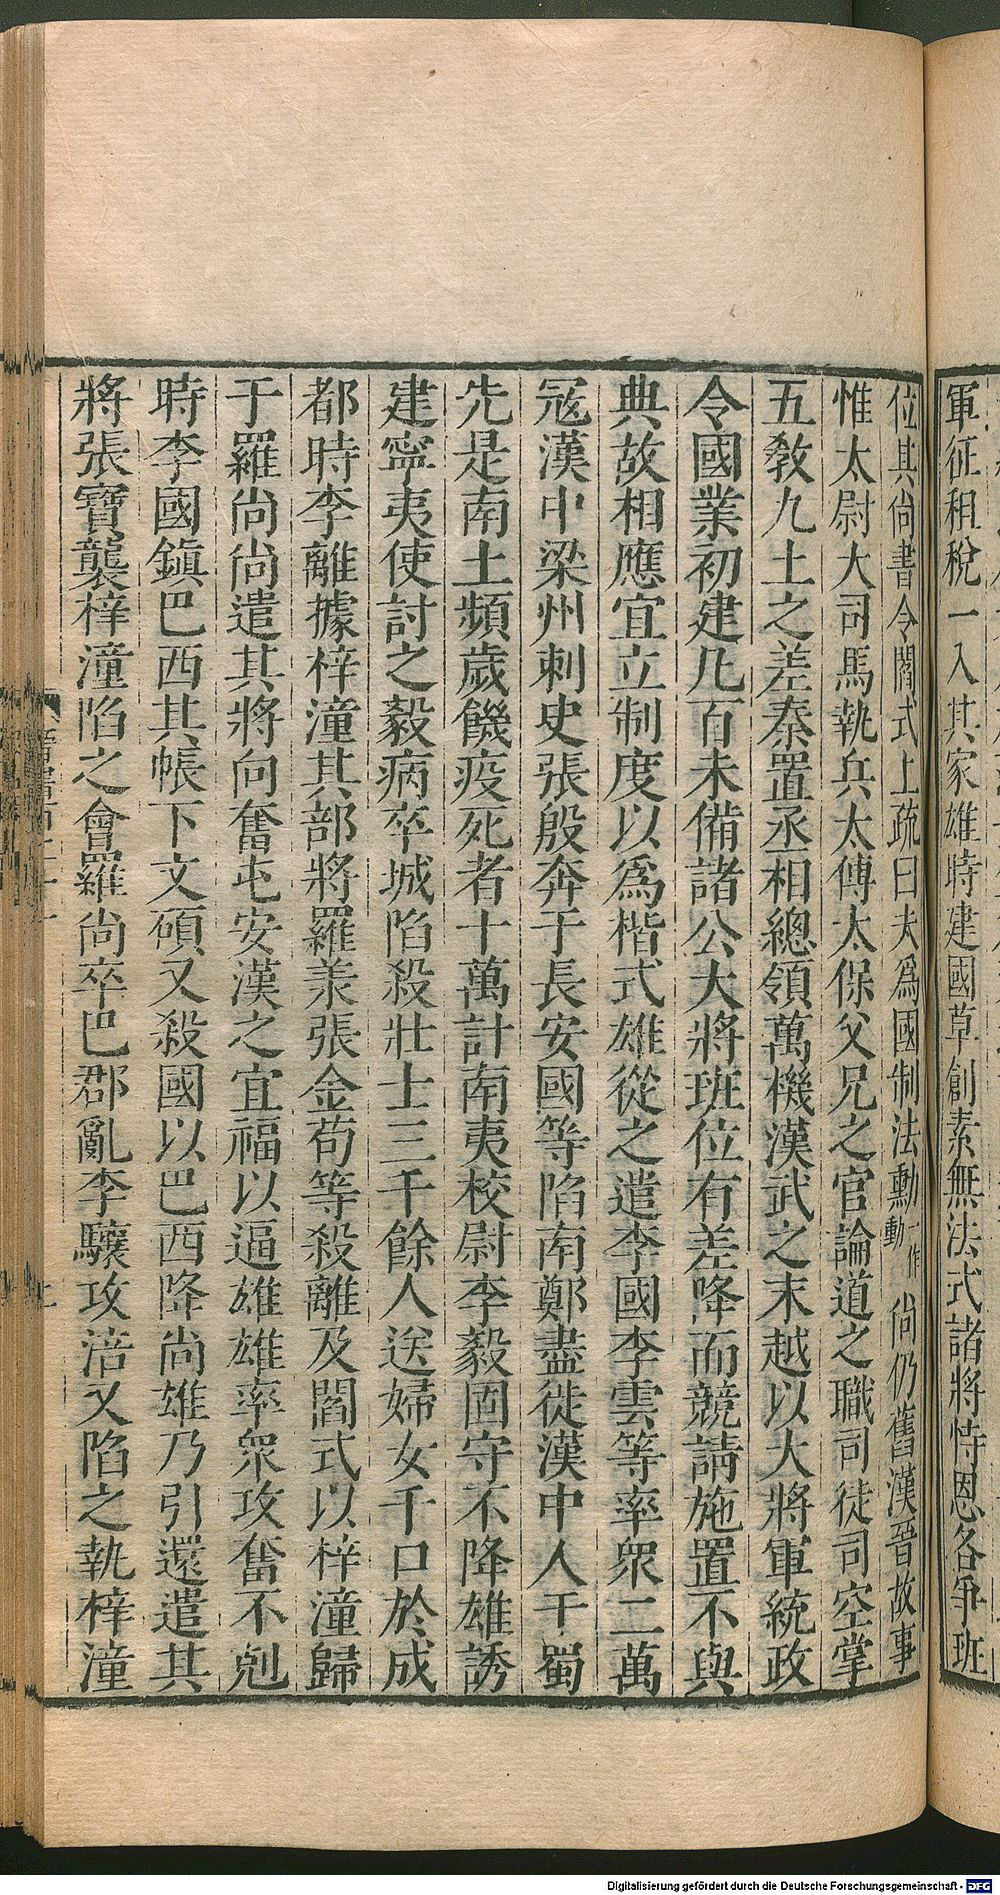 軍征租稅一入其家雄時建國草創素無法式諸將恃恩各爭班
位其尚書令閻式上疏曰夫爲國制法勳一作動尚仍舊漢晉故事
惟太尉大司馬執兵太傅太保父兄之官論道之職司徒司空掌
五敎九土之差秦置丞相總領萬機漢武之末越以大將軍統政
令國業初建凡百未備諸公大將班位有差降而競請施置不與
典故相應宜立制度以爲楷式雄從之遣李國李雲等率衆二萬
寇漢中梁州刺史張殷奔于長安國等陷南鄭盡徙漢中人于蜀
先是南土頻歲饑疫死者十萬計南夷校尉李毅固守不降雄誘
建寧夷使討之毅病卒城陷殺壯士三千餘人送婦女千口於成
都時李離據梓潼其部將羅羕張金苟等殺離及閻式以梓潼歸
于羅尚尚遣其將向奮屯安漢之宜福以逼雄雄率衆攻奮不剋
時李國鎮巴西其帳下文碩又殺國以巴西降尚雄乃引還遣其
將張寶襲梓潼陷之會羅尚卒巴郡亂李驤攻涪又陷之執梓潼
Digitalisierung gefördert durch die Deutsche Forschungsgemeinschaft - DFG